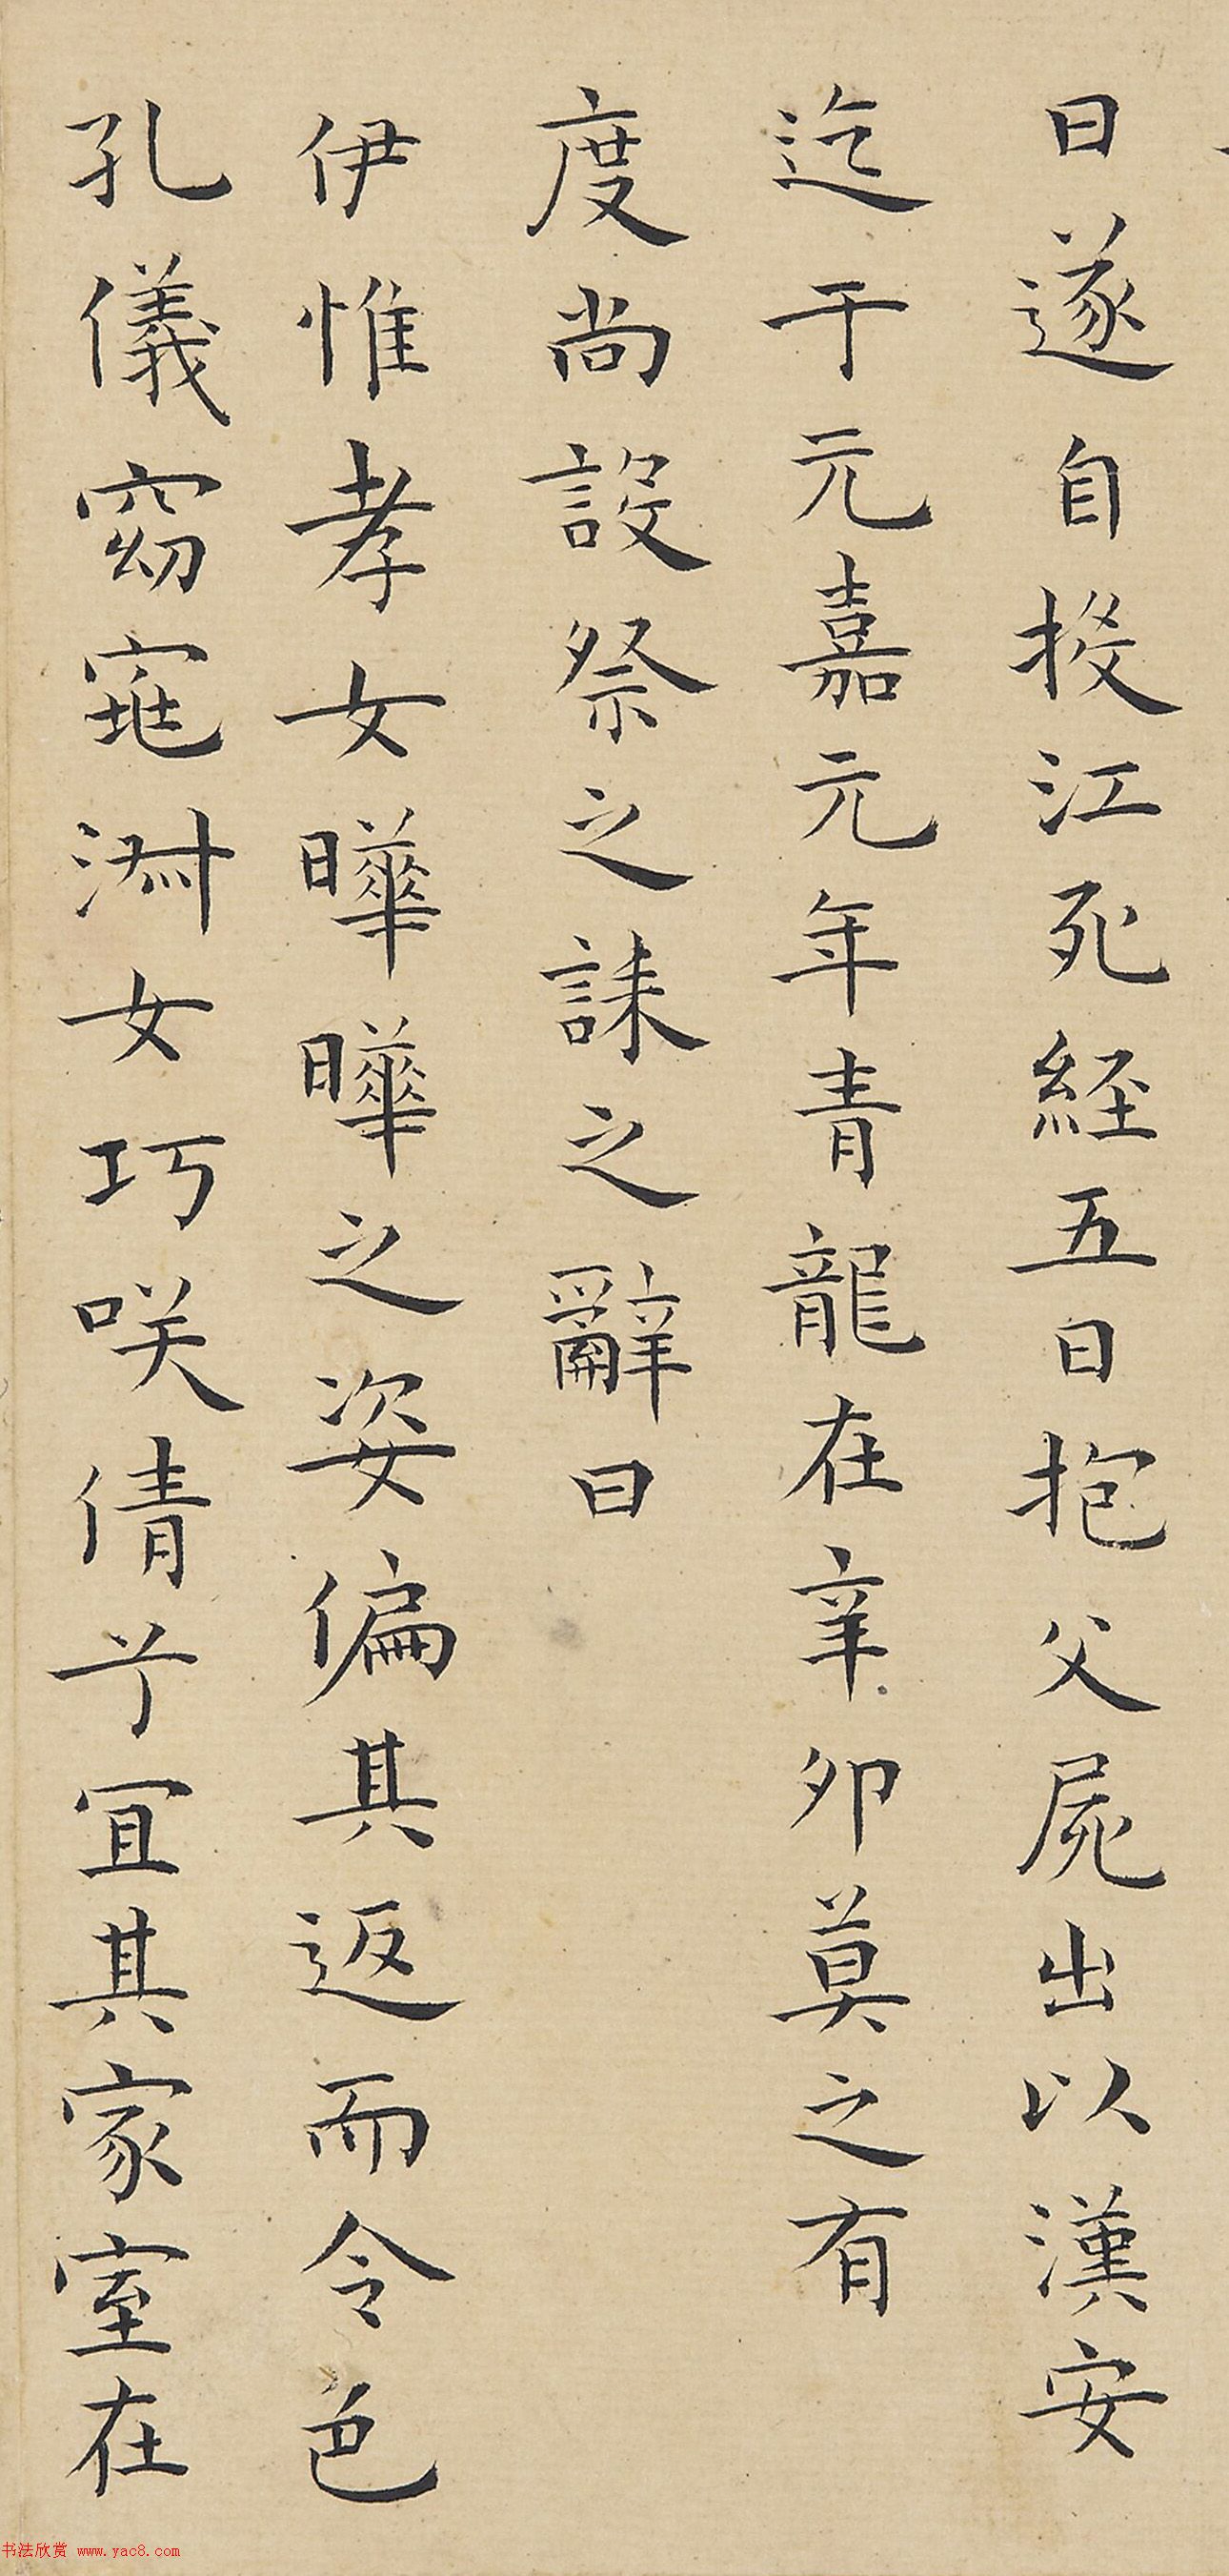 日遂自投江死経五日抱父屍出以漢安
迄于元嘉元年青龍在辛卯莫之有
度尚設祭之誄之辭曰
伊惟孝女曄曄之姿偏其返而令色
孔儀窈窕淑女巧咲倩兮宜其家室在
书法欣赏 www.yac8.com